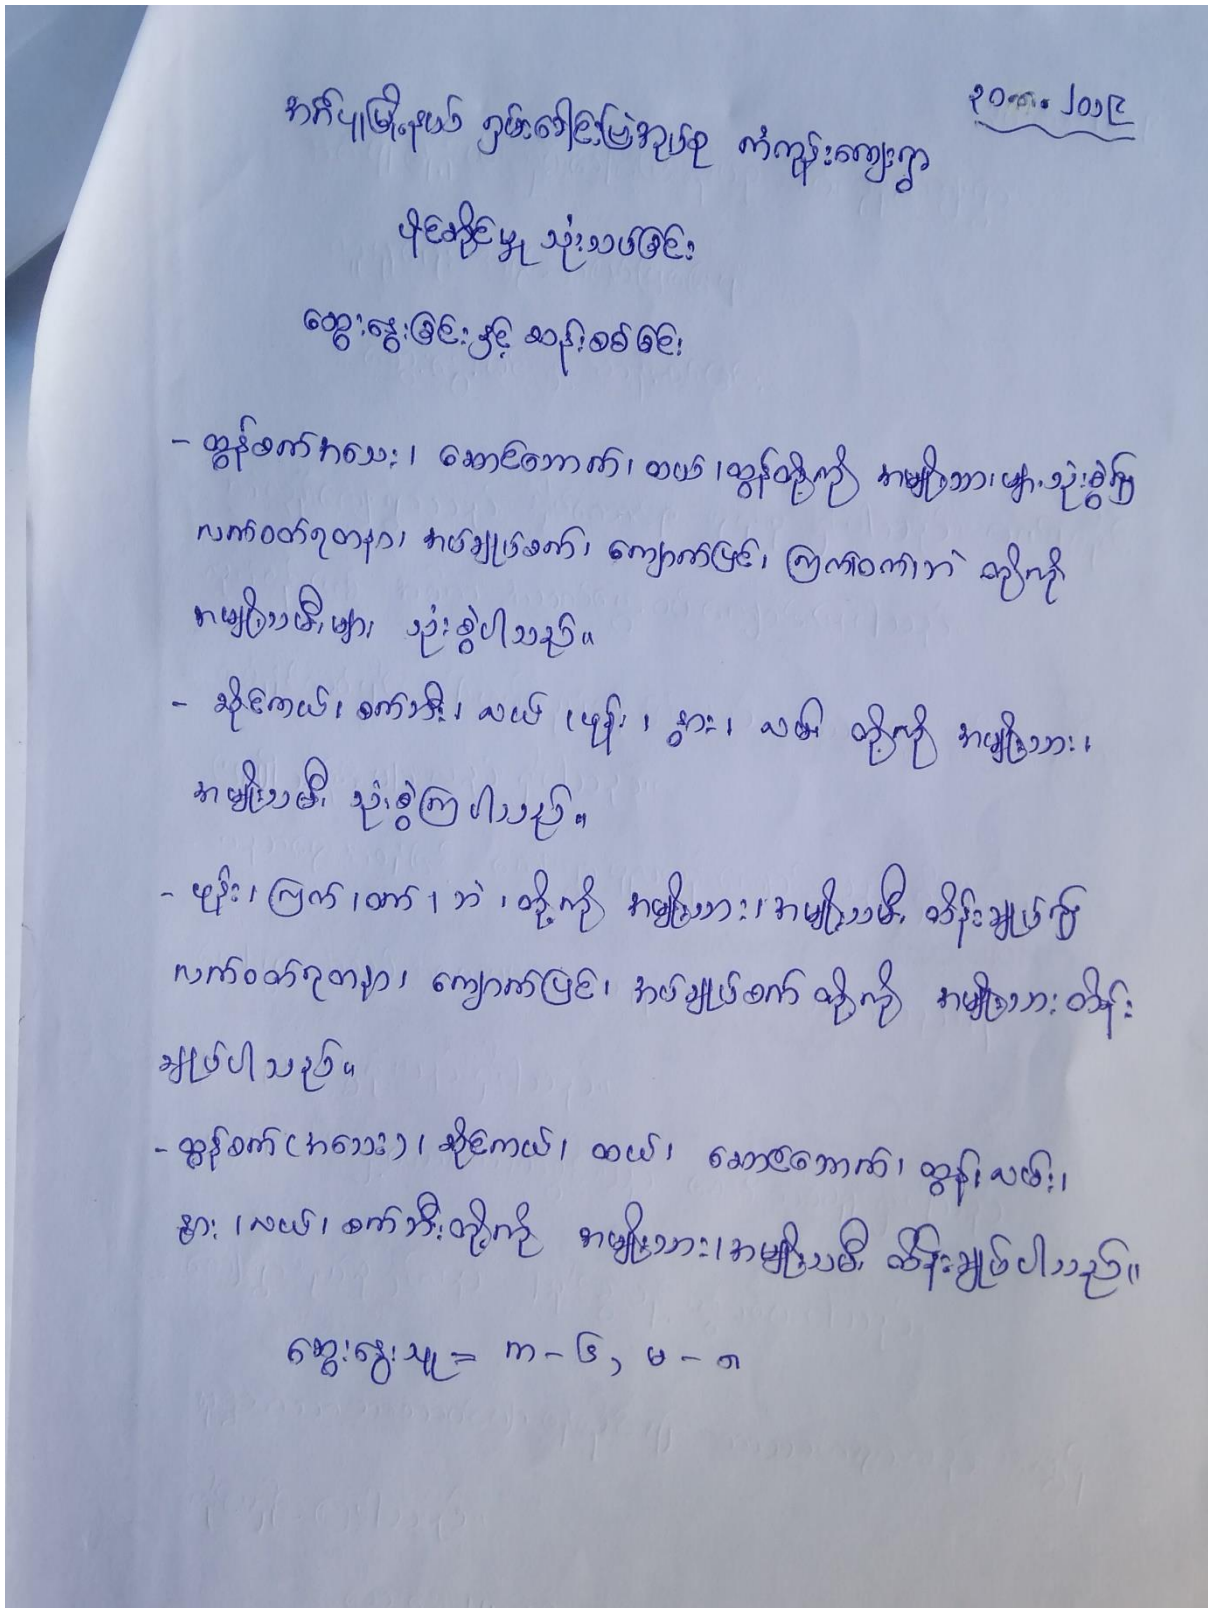 ၃၀ ... ၂၀၁၉
အင်္ဂပူမြို့နယ် ရှမ်းခေါင်းမြဲအုပ်စု ကံကုန်းကျေးရွာ
ပိုင်ဆိုင်မှု သုံးသပ်ခြင်း
ဆွေးနွေးခြင်းနှင့် ဆန်းစစ်ခြင်း
- ထွန်စက်အသေး၊ ဆောင်ဘောက်၊ ထယ်၊ ထွန်တို့ကို အမျိုးသားများသုံးစွဲ၍
လက်ဝတ်ရတနာ၊ အပ်ချုပ်စက်၊ ကျောက်ပြင်၊ ကြက်၊ ဝက်၊ ဘဲ တို့ကို
အမျိုးသမီးများ သုံးစွဲပါသည်။
- ဆိုင်ကယ်၊ စက်ဘီး၊ လယ်၊ ဖုန်း၊ နွား၊ လှည်း တို့ကို အမျိုးသား၊
အမျိုးသမီး သုံးစွဲကြပါသည်။
- ဖုန်း၊ ကြက်၊ ဝက်၊ ဘဲ၊ တို့ကို အမျိုးသား၊ အမျိုးသမီး ထိန်းချုပ်၍
လက်ဝတ်ရတနာ၊ ကျောက်ပြင်၊ အပ်ချုပ်စက် တို့ကို အမျိုးသား ထိန်း
ချုပ်ပါသည်။
- ထွန်စက်(အသေး)၊ ဆိုင်ကယ်၊ ထယ်၊ ဆောင်ဘောက်၊ ထွန်၊ လှည်း၊
နွား၊ လယ်၊ စက်ဘီးတို့ကို အမျိုးသား၊ အမျိုးသမီး ထိန်းချုပ်ပါသည်။
ဆွေးနွေးသူ = ကျ - ၆, မ - ၈